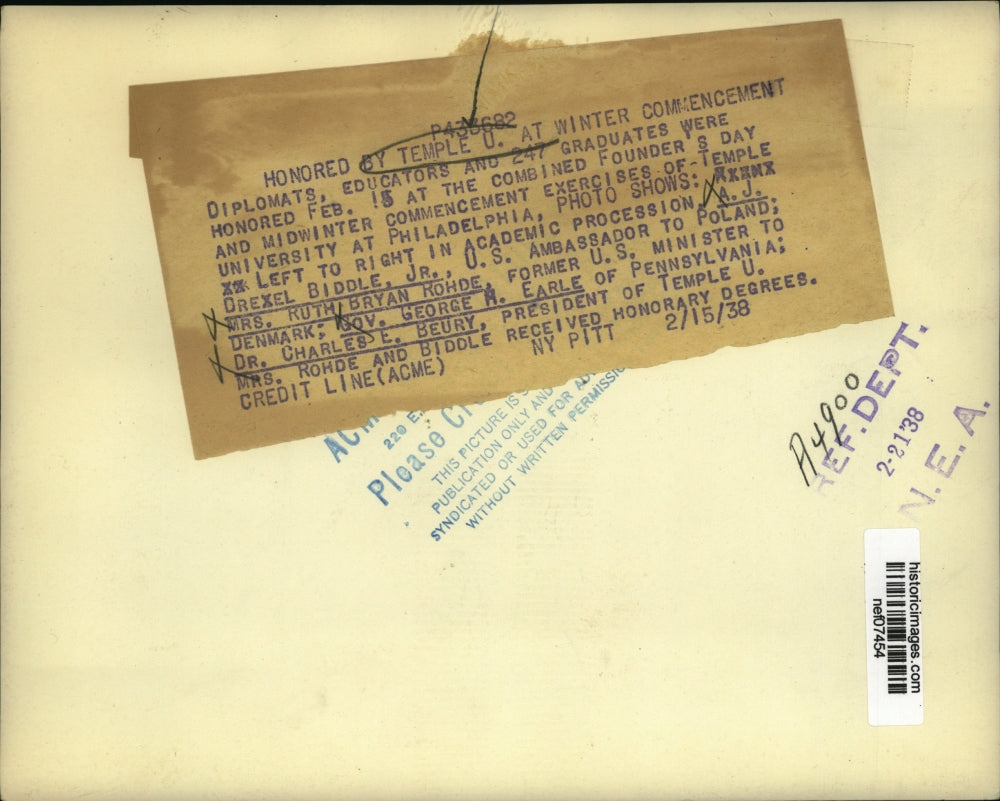 P433682
HONORED BY TEMPLE U. AT WINTER COMMENCEMENT
DIPLOMATS, EDUCATORS AND 247 GRADUATES WERE
HONORED FEB. 15 AT THE COMBINED FOUNDER'S DAY
AND MIDWINTER COMMENCEMENT EXERCISES OF TEMPLE
UNIVERSITY AT PHILADELPHIA, PHOTO SHOWS: XXXNX
XX LEFT TO RIGHT IN ACADEMIC PROCESSION, A. J.
DREXEL BIDDLE, JR., U.S. AMBASSADOR TO POLAND;
MRS. RUTH BRYAN ROHDE, FORMER U.S. MINISTER TO
DENMARK; GOV. GEORGE H. EARLE OF PENNSYLVANIA;
DR. CHARLES E. BEURY, PRESIDENT OF TEMPLE U.
MRS. ROHDE AND BIDDLE RECEIVED HONORARY DEGREES.
CREDIT LINE (ACME) NY PITT 2/15/38
220 E.
Please
THIS PICTURE IS
PUBLICATION ONLY AND
SYNDICATED OR USED FOR
WITHOUT WRITTEN
A4900
REF. DEPT.
2-21'38
N. E. A.
historicimages.com
nef07454